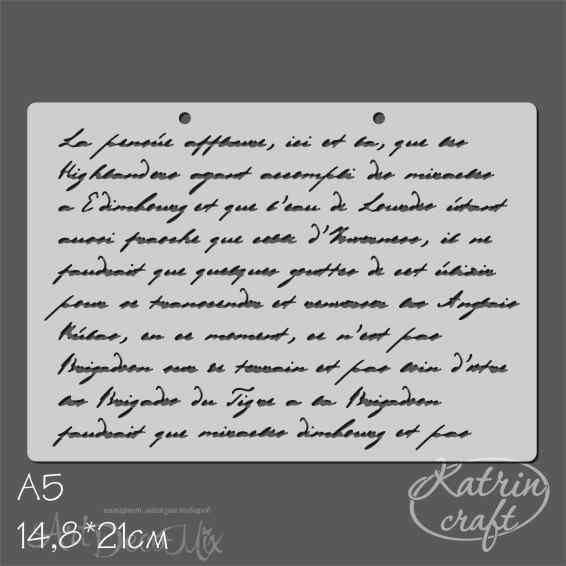 La pensée affleure, ici et là, que les
Highlanders ayant accompli des miracles
a Edimbourg et que l'eau de Lourdes étant
aussi fraiche que celle d'Inverness, il ne
faudrait que quelques gouttes de cet élixir
pour se transcender et renverser les Anglais
Hélas, en ce moment, ce n'est pas
Brigadoon sur ce terrain et pas loin d'être
les Brigades du Tigre a la Brigadoon
faudrait que miracles dimbourg et pas
A5
14,8*21см
Katrin
craft